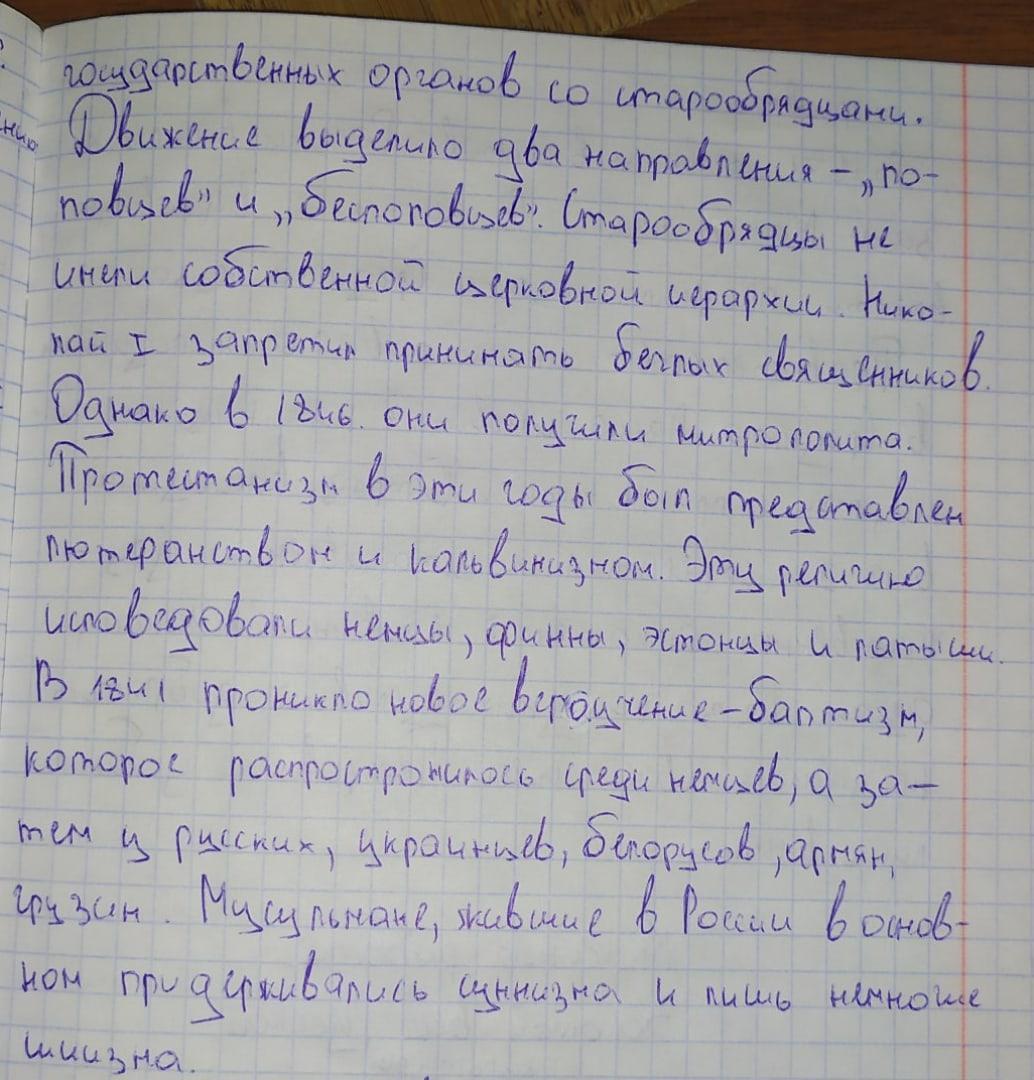 государственных органов со старообрядцами.
Движение выделило два направления – „по-
повцев” и „беспоповцев”. Старообрядцы не
имели собственной церковной иерархии. Нико-
лай I запретил принимать беглых священников.
Однако в 1846. они получили митрополита.
Протестанизм в эти годы был представлен
лютеранством и кальвинизмом. Эту религию
исповедовали немцы, финны, эстонцы и латыши.
В 1841 проникло новое вероучение – баптизм,
которое распростронилось среди немцев, а за-
тем у русских, украинцев, белорусов, армян,
грузин. Мусульмане, жившие в России в основ-
ном придерживались суннизма и лишь немногие
шиизма.